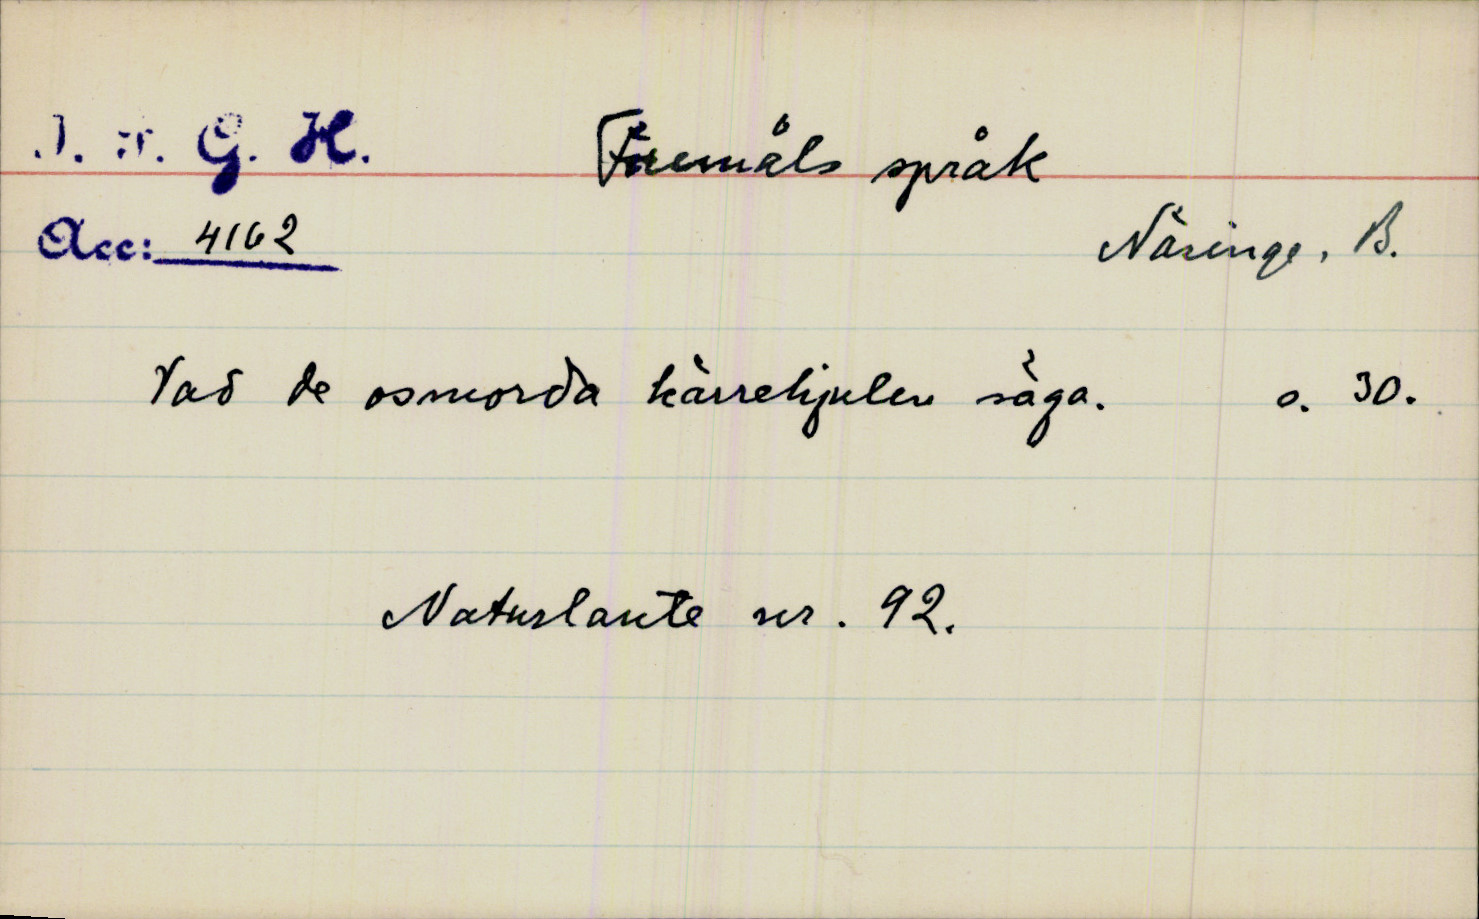 I. F. G. H. Föremåls språk
Acc: 4162 Näsinge, B.
Vad de osmorda kärrehjulen säga. s. 30.
Naturlaute nr. 92.